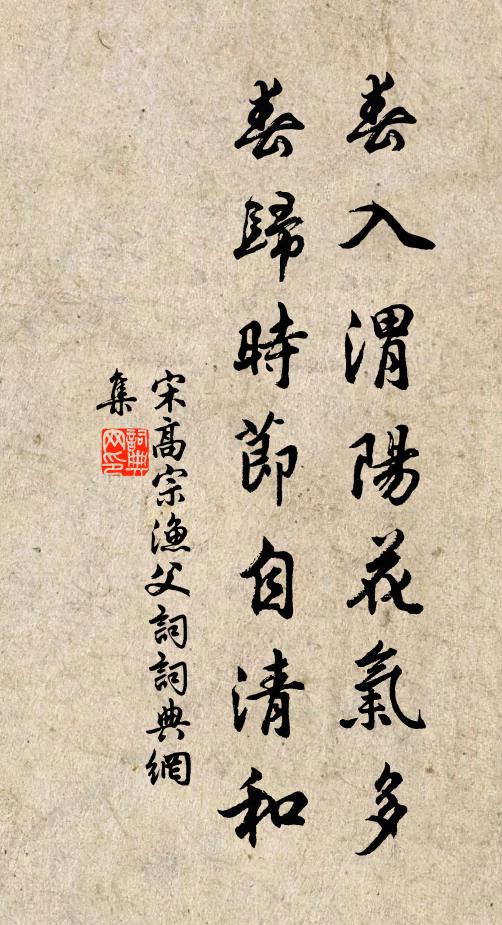 春入渭陽花氣多
春歸時節自清和
宋高宗漁父詞詞典網
集
詞典
网印